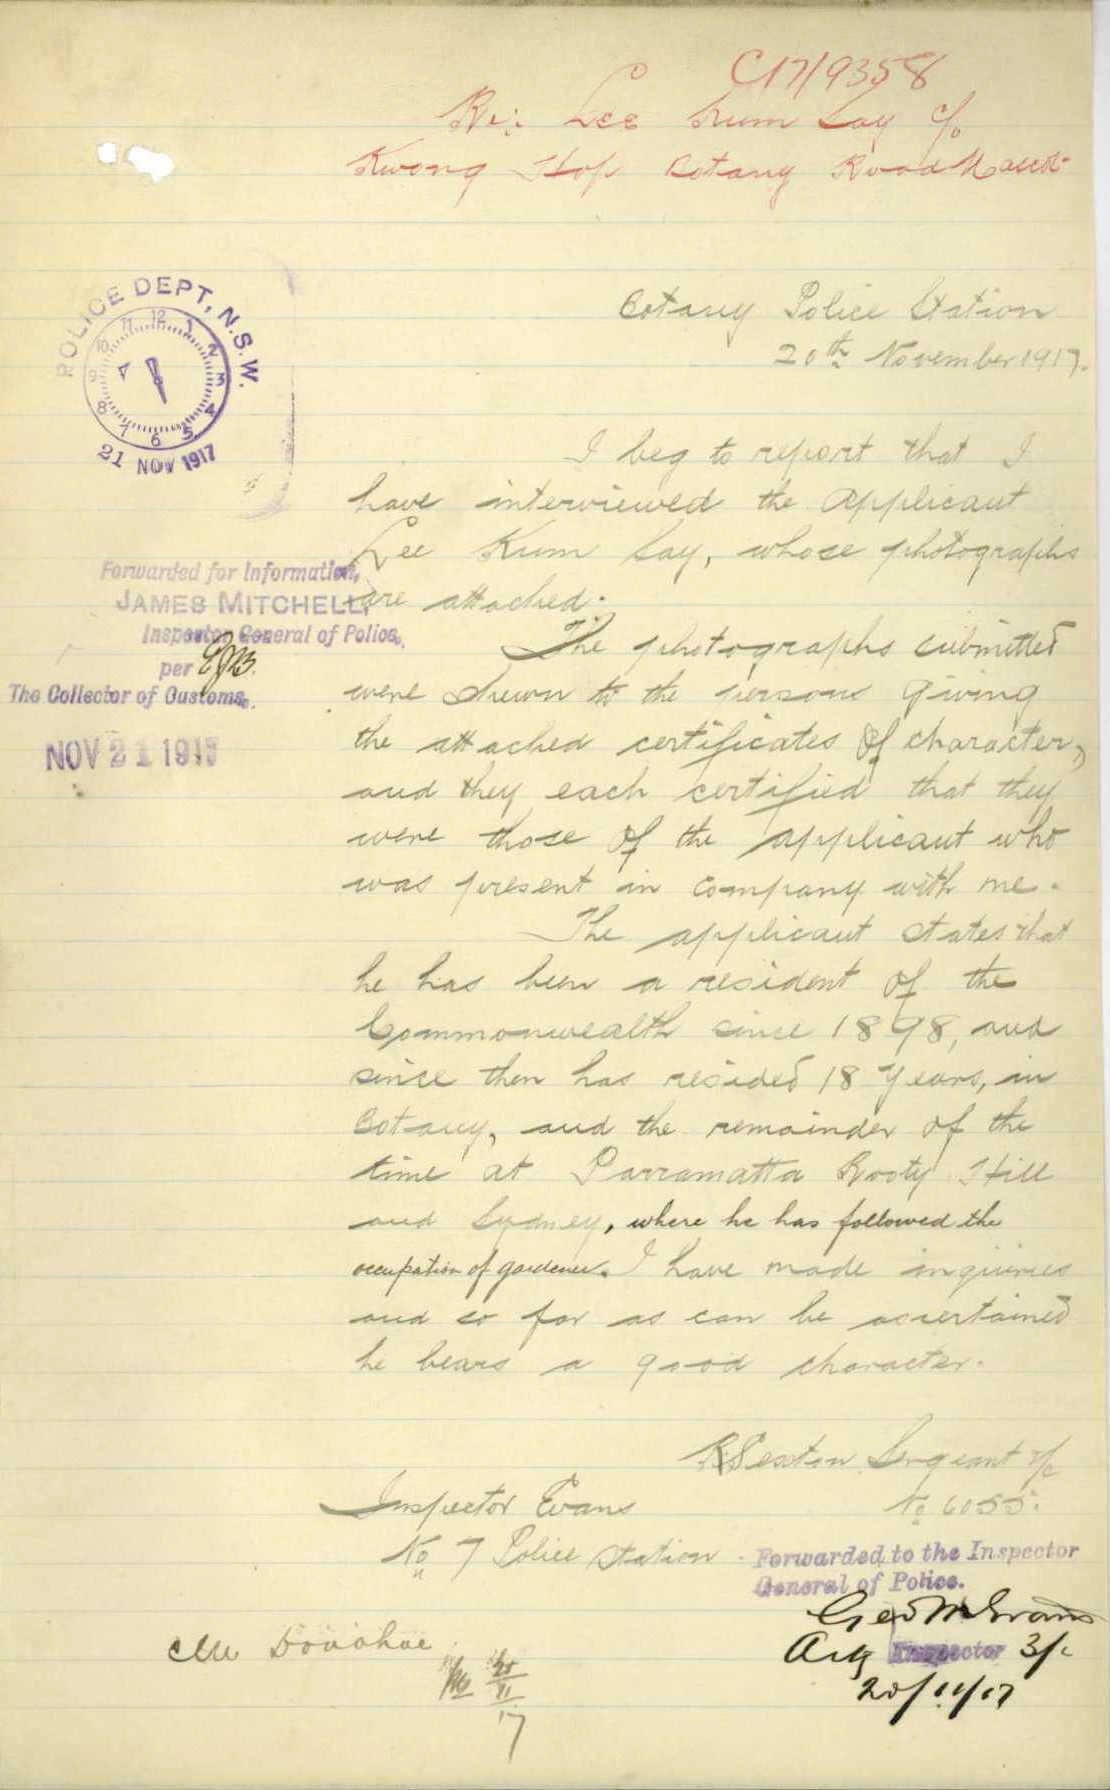 C17/9358
Re: Lee Kum Lay c/o
Kwong Hop Botany Road
Botany Police Station
20th November 1917.
POLICE DEPT, N.S.W.
12 1 2 3 4 5 6 7 8 9 10 11
21 NOV 1917
I beg to report that I
have interviewed the Applicant
Lee Kum Lay, whose photographs
are attached.
The photographs submitted
were shewn to the persons giving
the attached certificates of character,
and they each certified that they
were those of the applicant who
was present in company with me.
The applicant states that
he has been a resident of the
Commonwealth since 1898, and
since then has resided 18 years, in
Botany, and the remainder of the
time at Parramatta Rooty Hill
and Sydney, where he has followed the
occupation of gardener. I have made inquiries
and so far as can be ascertained
he bears a good character.
Forwarded for Information,
JAMES MITCHELL,
Inspector General of Police.
per
The Collector of Customs.
NOV 21 1917
R Sexton Sergeant
No 6055.
Inspector Evans
No 7 Police Station
Forwarded to the Inspector
General of Police.
Inspector
20/11/17
Donohoe
20
11
17